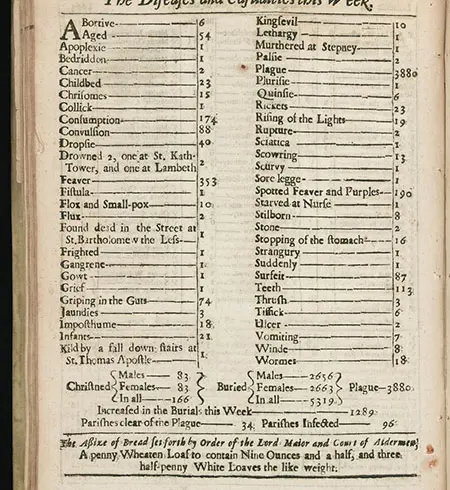 The Diseases and Casualties this Week.
ABortive 6
Aged 54
Apoplexie 1
Bedridden 1
Cancer 2
Childbed 23
Chrisomes 15
Collick 1
Consumption 174
Convulsion 88
Dropsie 40
Drowned 2, one at St. Kath-
Tower, and one at Lambeth 2
Feaver 353
Fistula 1
Flox and Small-pox 10
Flux 2
Found dead in the Street at
St. Bartholomew the Less 1
Frighted 1
Gangrene 1
Gowt 1
Grief 1
Griping in the Guts 74
Jaundies 3
Imposthume 18
Infants 21
Kild by a fall down stairs at
St. Thomas Apostle 1
Kingsevil 10
Lethargy 1
Murthered at Stepney 1
Palsie 2
Plague 3880
Plurisie 1
Quinsie 6
Rickets 23
Rising of the Lights 19
Rupture 2
Sciatica 1
Scowring 13
Scurvy 1
Sore legge 1
Spotted Feaver and Purples 190
Starved at Nurse 1
Stilborn 8
Stone 2
Stopping of the stomach 16
Strangury 1
Suddenly 1
Surfeit 87
Teeth 113
Thrush 3
Tissick 6
Ulcer 2
Vomiting 7
Winde 8
Wormes 18
Christned Males 83 Females 83 In all 166 Buried Males 2656 Females 2663 In all 5319 Plague 3880
Increased in the Burials this Week 1289
Parishes clear of the Plague 34 Parishes Infected 96
The Assize of Bread set forth by Order of the Lord Maior and Court of Aldermen,
A penny Wheaten Loaf to contain Nine Ounces and a half, and three
half-penny White Loaves the like weight.